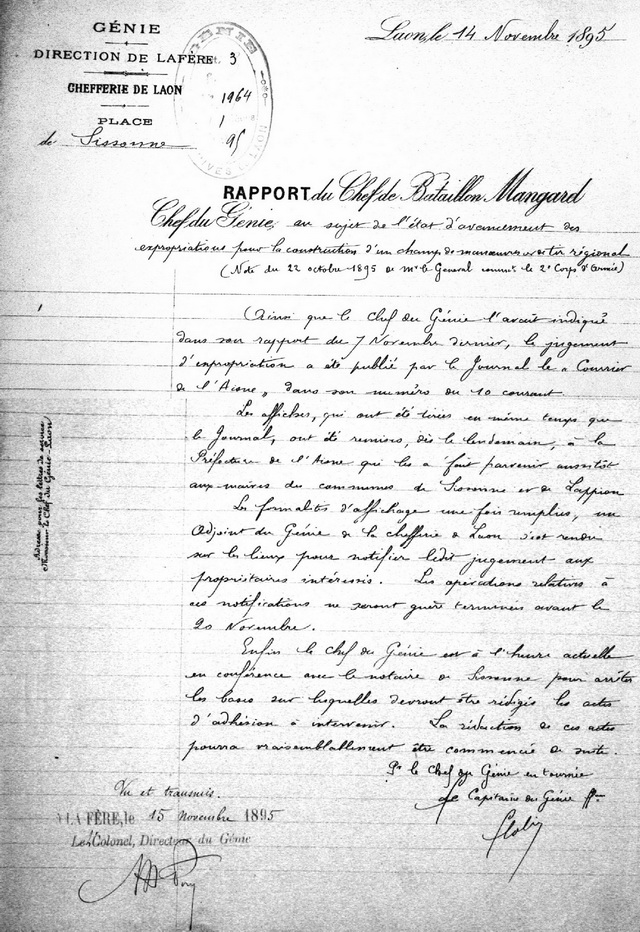 GÉNIE
DIRECTION DE LAFÈRE
CHEFFERIE DE LAON
PLACE
de Sissonne
GÉNIE
3
1964
1
95
Laon, le 14 Novembre 1895
RAPPORT du Chef de Bataillon Mangard
Chef du Génie, au sujet de l'état d'avancement des
expropriations pour la construction d'un champ de manœuvres et de tir régional
(Note du 22 octobre 1895 de Mr le Général commt le 2e Corps d'Armée)
Ainsi que le Chef du Génie l'avait indiqué
dans son rapport du 7 Novembre dernier, le jugement
d'expropriation a été publié par le Journal le « Courrier
de l'Aisne, dans son numéro du 10 courant
Les affiches, qui ont été tirées en même temps que
le Journal, ont été remises, dès le lendemain, à la
Préfecture de l'Aisne qui les a fait parvenir aussitôt
aux maires des communes de Sissonne et de Lappion
Les formalités d'affichage une fois remplies, un
Adjoint du Génie de la chefferie de Laon s'est rendu
sur les lieux pour notifier ledit jugement aux
propriétaires intéressés. Les opérations relatives à
ces notifications ne seront guère terminées avant le
20 Novembre.
Enfin le Chef du Génie est à l'heure actuelle
en conférence avec le notaire de Sissonne pour arrêter
les bases sur lesquelles devront être rédigés les actes
d'adhésion à intervenir. La rédaction de ces actes
pourra vraisemblablement être commencée de suite.
Pr le Chef du Génie en tournée
Le Capitaine du Génie
Adresse pour les lettres de service
Monsieur le Chef du Génie - Laon
Vu et transmis.
A LA FÈRE, le 15 Novembre 1895
Le Lt Colonel, Directeur du Génie